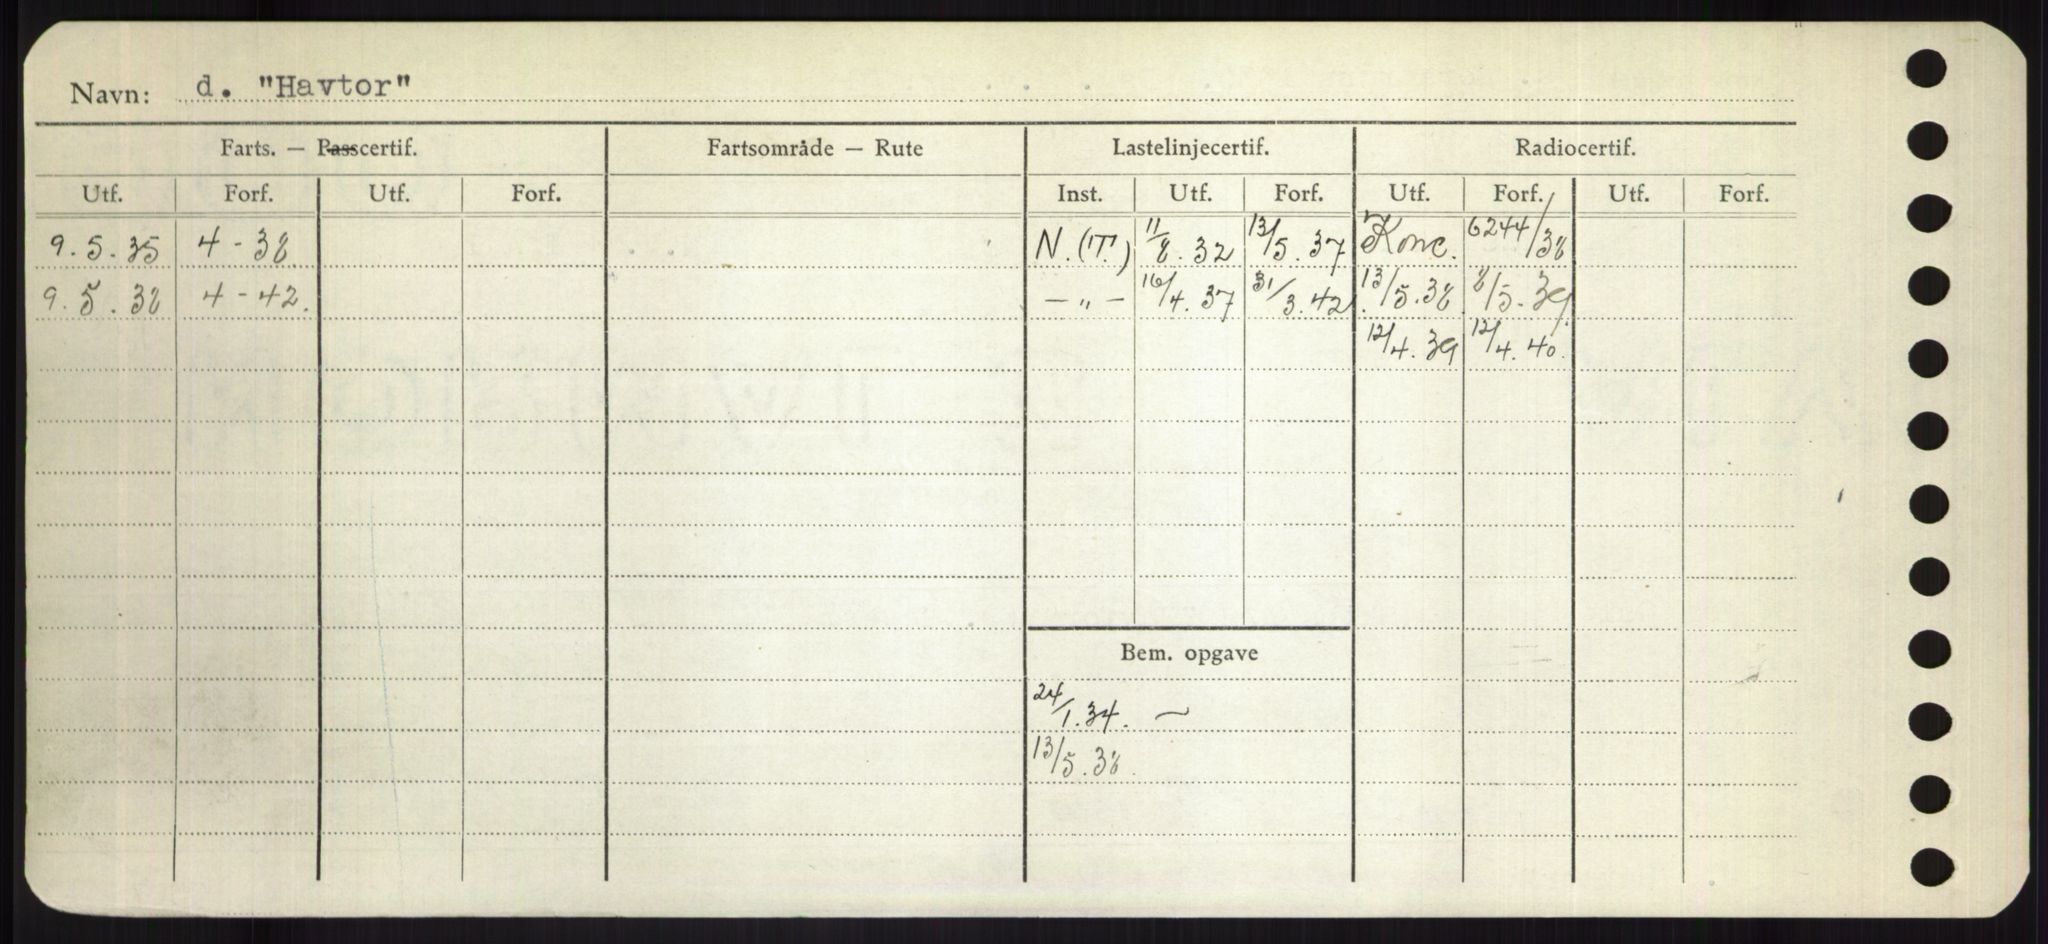 Navn: d. "Havtor"
Farts. — Passcertif. Fartsområde — Rute Lastelinjecertif. Radiocertif.
Utf. Forf. Utf. Forf. Inst. Utf. Forf. Utf. Forf. Utf. Forf.
9.5.35 4-38 N.(T.) 11/8.32 13/5.37 Konc. 6244/38
9.5.38 4-42. —„— 16/4.37 31/3.42 13/5.38 8/5.39
12/4.39 12/4.40.
Bem. opgave
24/1.34. —
13/5.38.